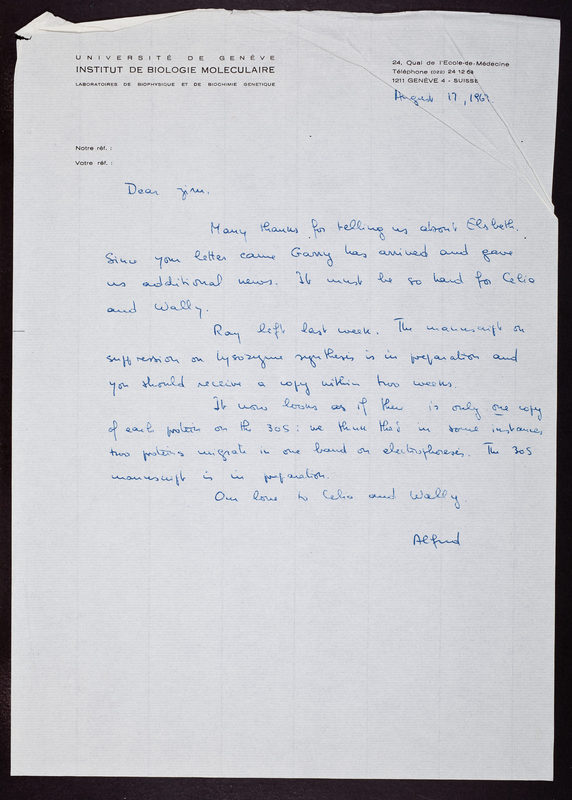 UNIVERSITÉ DE GENÈVE
INSTITUT DE BIOLOGIE MOLECULAIRE
LABORATOIRES DE BIOPHYSIQUE ET DE BIOCHIMIE GENETIQUE
24, Quai de l'Ecole-de-Médecine
Téléphone (022) 24 12 64
1211 GENÈVE 4 - SUISSE
August 17, 1967
Notre réf. :
Votre réf. :
Dear Jim.
Many thanks for telling us about Elsbeth.
Since your letter came Garry has arrived and gave
us additional news. It must be so hard for Celia
and Wally.
Ray left last week. The manuscript on
suppression on lysozyme syntheses is in preparation and
you should receive a copy within two weeks.
It now looks as if there is only one copy
of each protein on the 30S: we think that in some instances
two proteins migrate in one band on electrophoreses. The 30S
manuscript is in preparation.
Our love to Celia and Wally.
Alfred